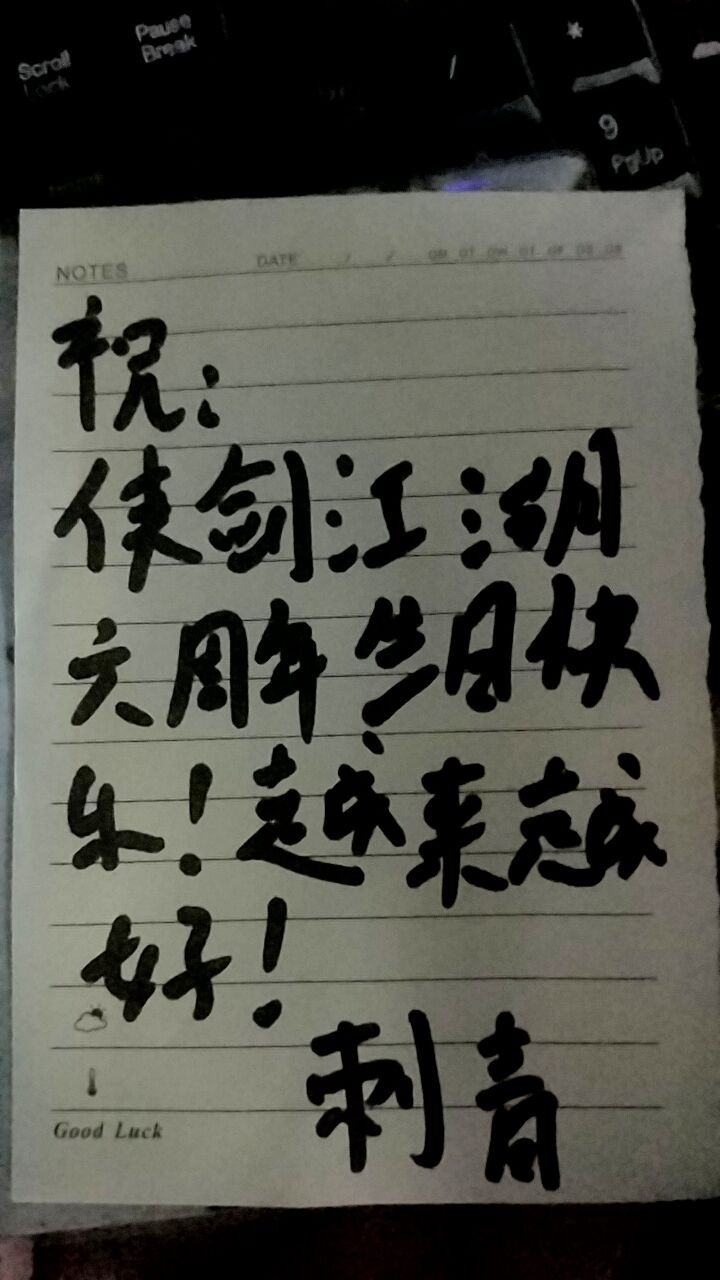 Scroll
Lock
Pause
Break
*
9
PgUp
NOTES
DATE / /
祝:
侠剑江湖
六周年生日快
乐!越来越
好!
刺青
Good Luck